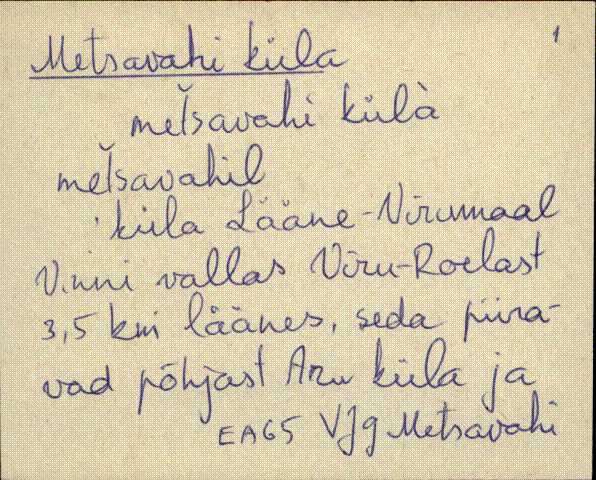 1
Metsavahi küla
metšavahi külà
metšavahil
küla Lääne-Virumaal
Vinni vallas Viru-Roelast
3,5 km läänes, seda piira-
vad põhjast Aru küla ja
EA65 VJg Metsavahi